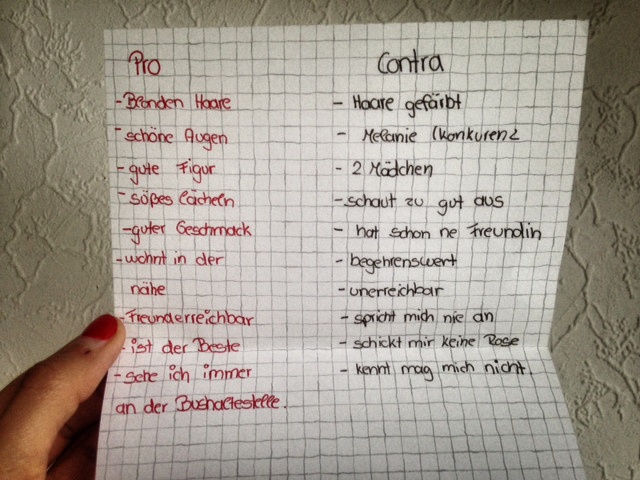 Pro
-Blonden Haare
-schöne Augen
-gute Figur
-süßes lächeln
-guter Geschmack
-wohnt in der
nähe
-Freunderreichbar
-ist der Beste
-sehe ich immer
an der Bushaltestelle.
Contra
- Haare gefärbt
- Melanie (konkurenz
- 2 Mädchen
-schaut zu gut aus
- hat schon ne Freundin
- begehrenswert
-unerreichbar
- spricht mich nie an
- schickt mir keine Rose
- kennt mag mich nicht.